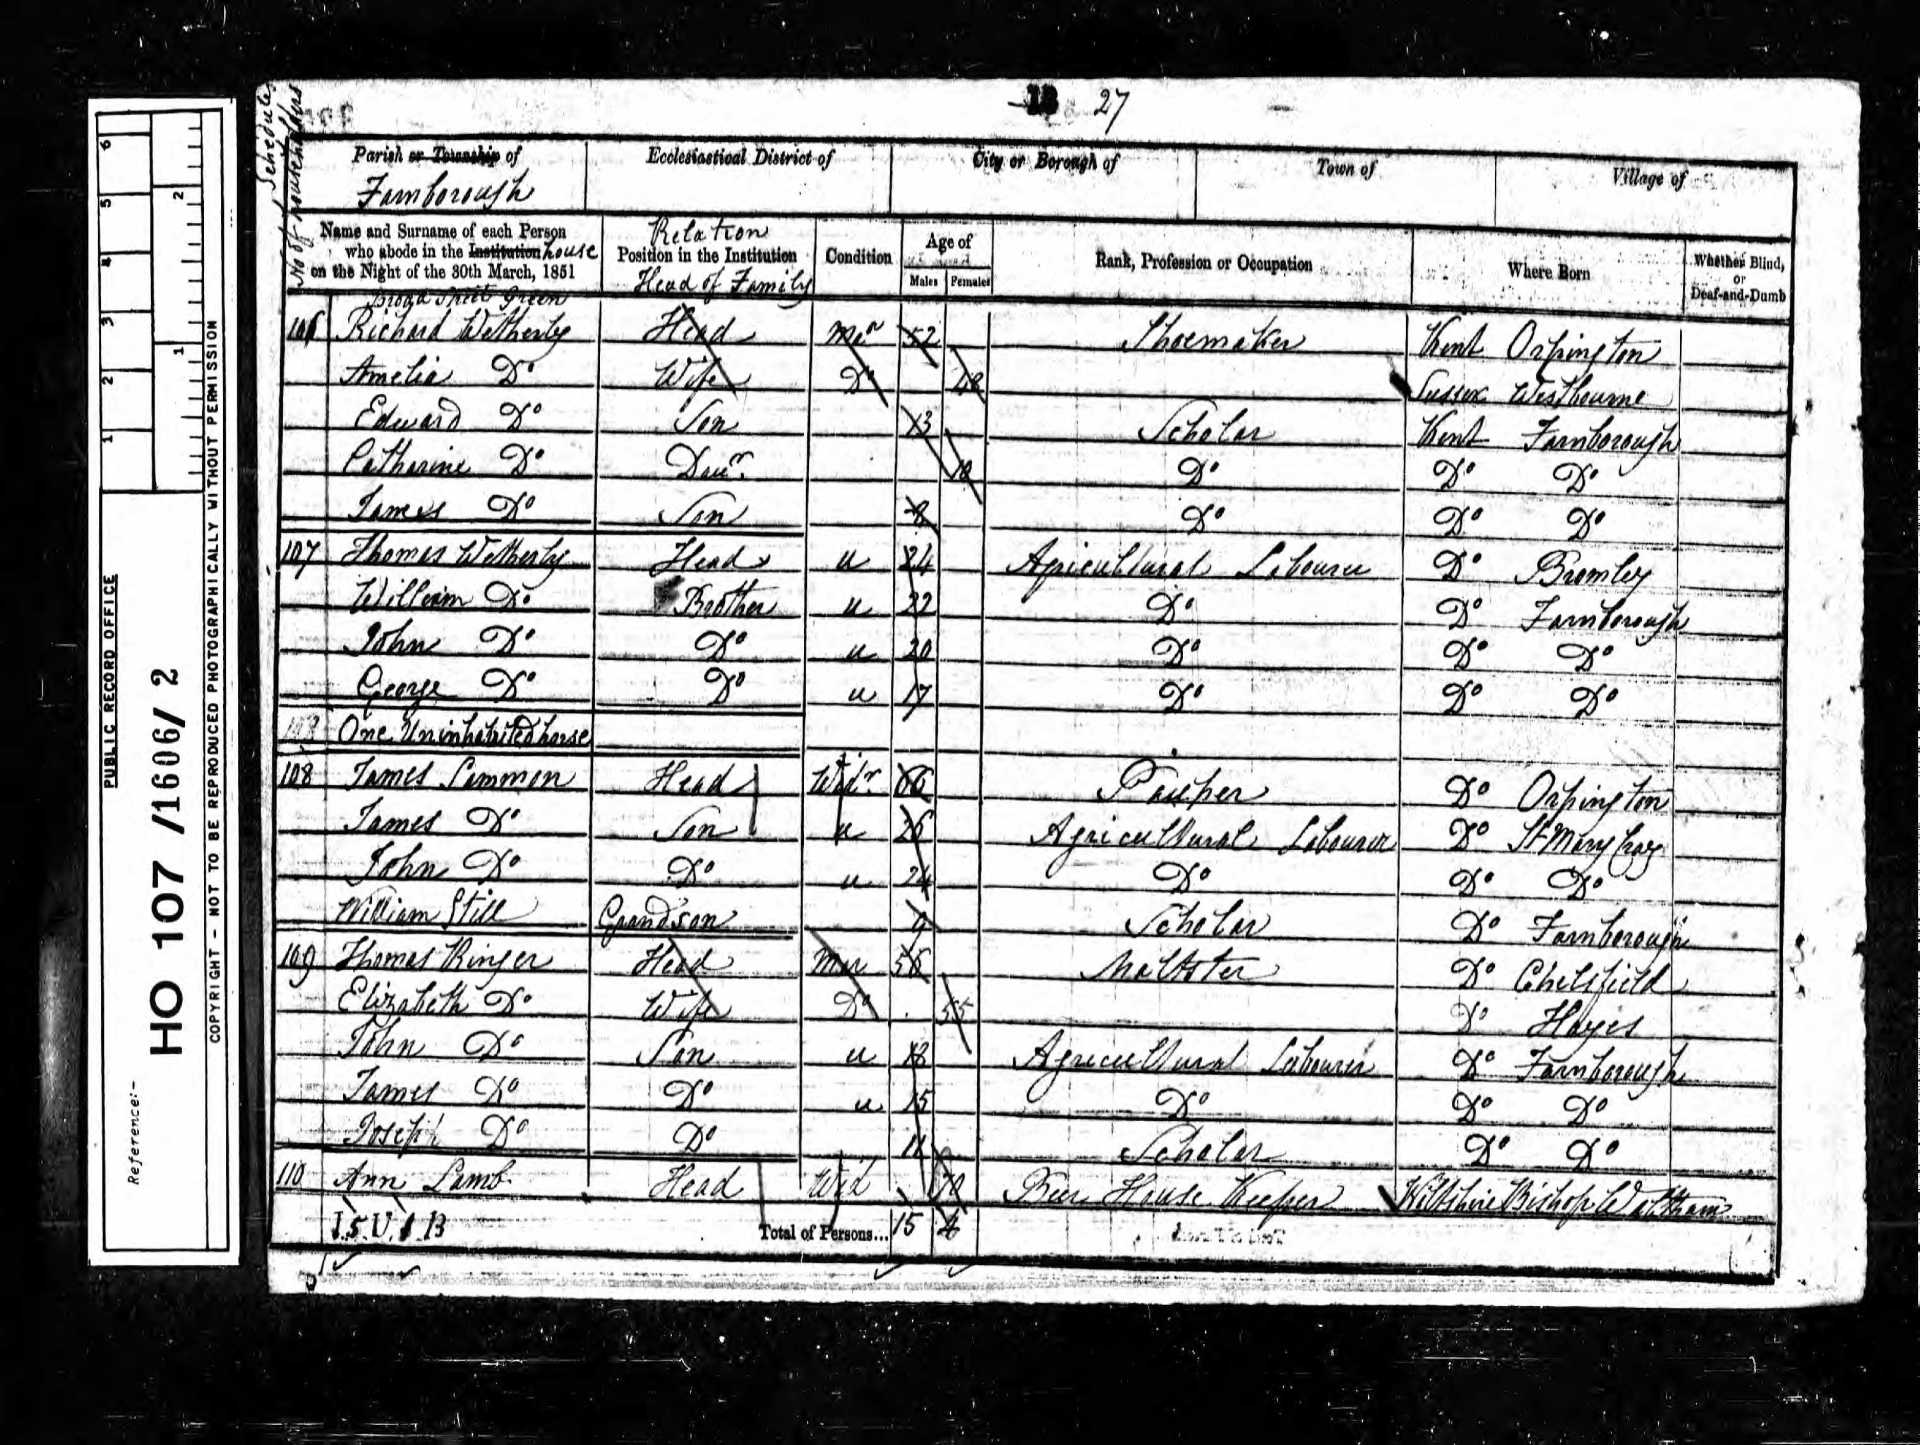 Schedule
No of householders
13 27
Parish or Township of Ecclesiastical District of City or Borough of Town of Village of
Farnborough
Name and Surname of each Person who abode in the Institution house on the Night of the 30th March, 1851
Relation
Position in the Institution
Head of Family
Condition
Age of
Males Females
Rank, Profession or Occupation
Where Born
Whether Blind, or Deaf-and-Dumb
Broad Street Green
106 Richard Wetherby Head Mar 52 Shoemaker Kent Orpington
Amelia Do Wife Do 48 Sussex Westbourne
Edward Do Son 13 Scholar Kent Farnborough
Catharine Do Daur. 10 Do Do Do
James Do Son 8 Do Do Do
107 Thomas Wetherby Head u 24 Agricultural Labourer Do Bromley
William Do Brother u 22 Do Do Farnborough
John Do Do u 20 Do Do Do
George Do Do u 17 Do Do Do
One Uninhabited house
108 James Lammon Head Widr. 66 Pauper Do Orpington
James Do Son u 26 Agricultural Labourer Do St Mary Cray
John Do Do u 24 Do Do Do
William Still Grandson 9 Scholar Do Farnborough
109 Thomas Ringer Head Mar 56 Maltster Do Chelsfield
Elizabeth Do Wife Do 55 Do Hayes
John Do Son u 18 Agricultural Labourer Do Farnborough
James Do Do u 15 Do Do Do
Joseph Do Do 11 Scholar Do Do
110 Ann Lamb Head Wid 70 Beer House Keeper Wiltshire Bishop Waltham
I 5 U 1 B Total of Persons... 15 4
PUBLIC RECORD OFFICE
Reference:-
HO 107 /1606/2
COPYRIGHT - NOT TO BE REPRODUCED PHOTOGRAPHICALLY WITHOUT PERMISSION
1 2 3 4 5 6
1 2